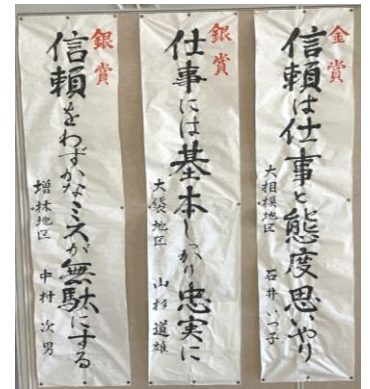 金賞
信頼は仕事と態度思いやり
大相模地区 石井 いつ子
銀賞
仕事には基本しっかり忠実に
大袋地区 山杉 道雄
銀賞
信頼をわずかなミスが無駄にする
増林地区 中村 次男